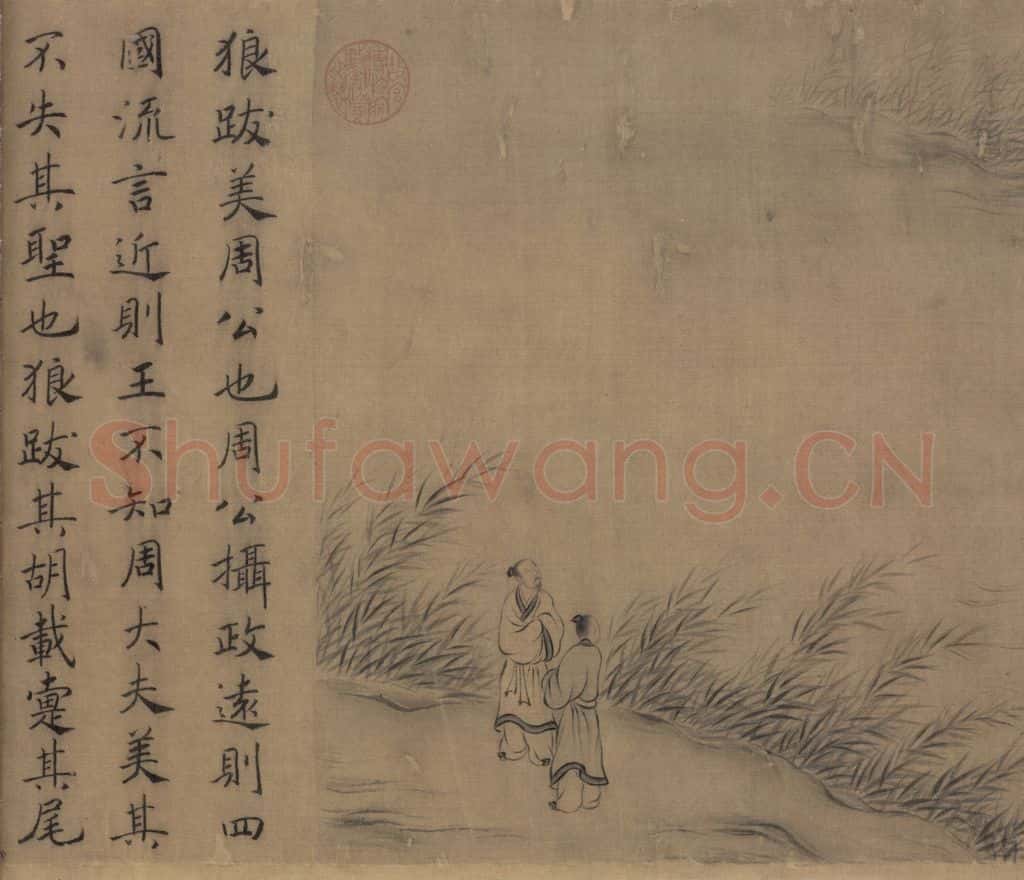 狼跋美周公也周公攝政遠則四
國流言近則王不知周大夫美其
不失其聖也狼跋其胡載疐其尾
Shufawang.CN